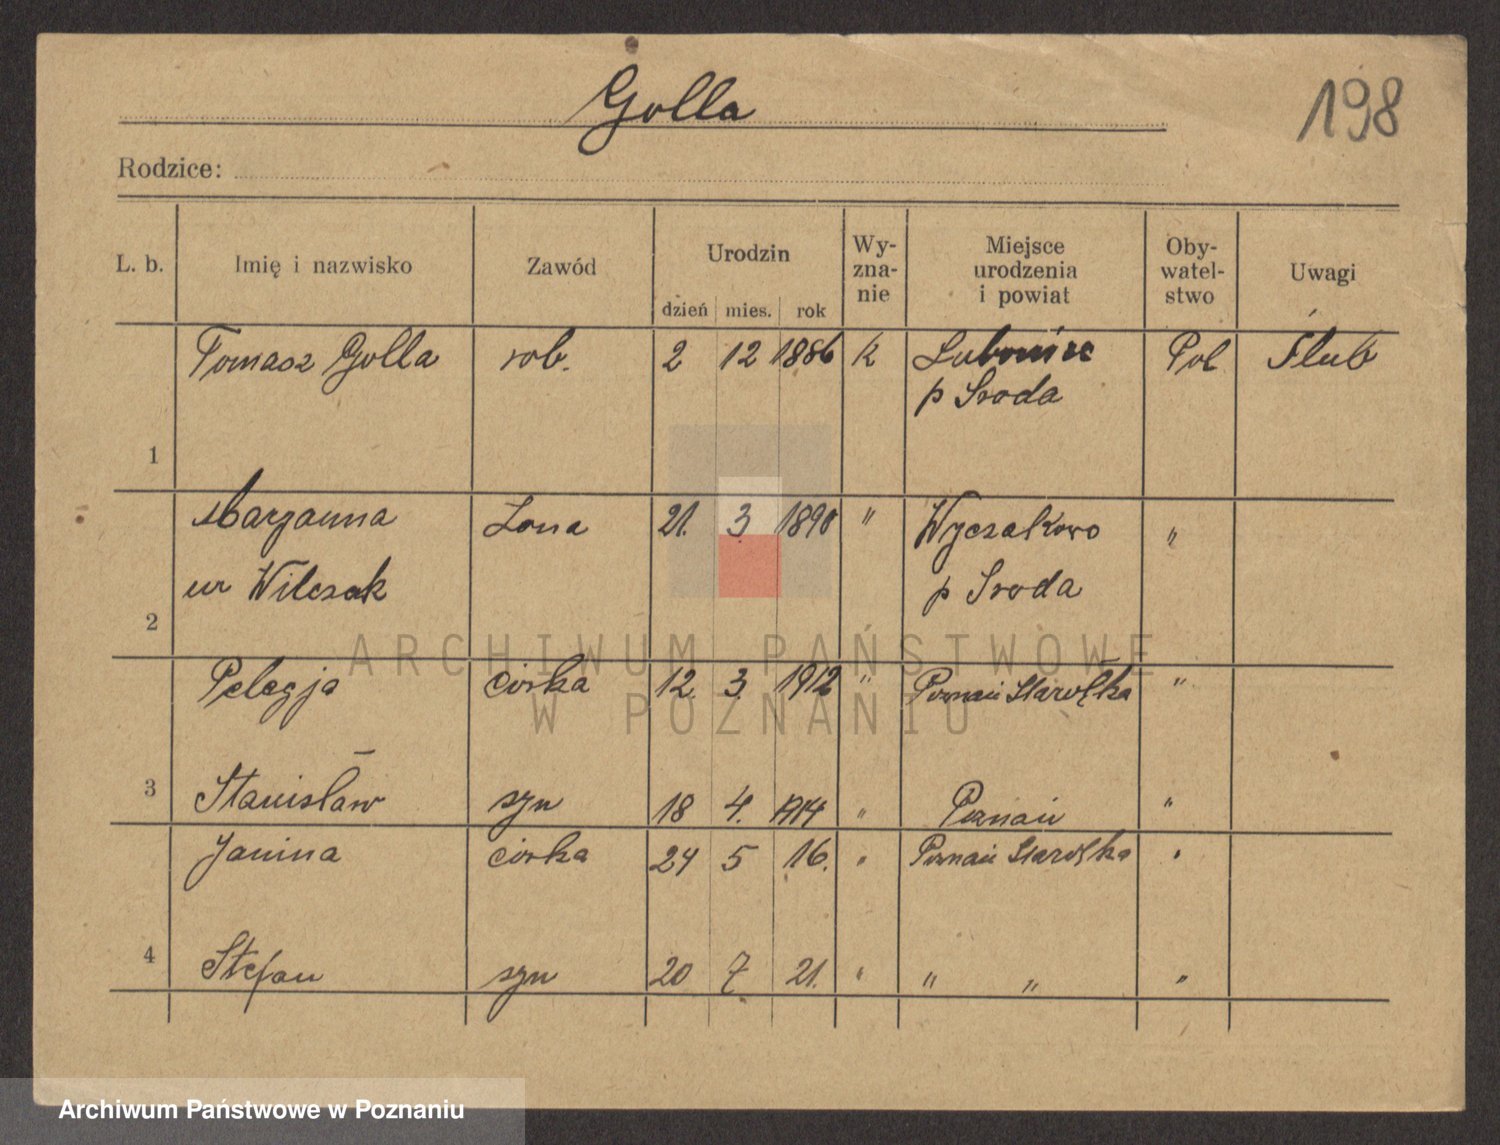 Golla
198
Rodzice:
L. b. Imię i nazwisko Zawód Urodzin dzień mies. rok Wy-zna-nie Miejsce urodzenia i powiat Oby-watel-stwo Uwagi
Tomasz Golla rob. 2 12 1886 k Luboniec Pol Ślub
p Sroda
1
Maryanna żona 21. 3 1890 " Wyszakowo "
ur Wilczak p Sroda
2
Pelagja córka 12. 3. 1912 " Poznań Starołęka "
3 Stanisław syn 18 4. 1914 " Poznań "
Janina córka 24 5 16. " Poznań Starołęka "
4 Stefan syn 20 7 21. " " " "
ARCHIWUM PAŃSTWOWE
W POZNANIU
Archiwum Państwowe w Poznaniu